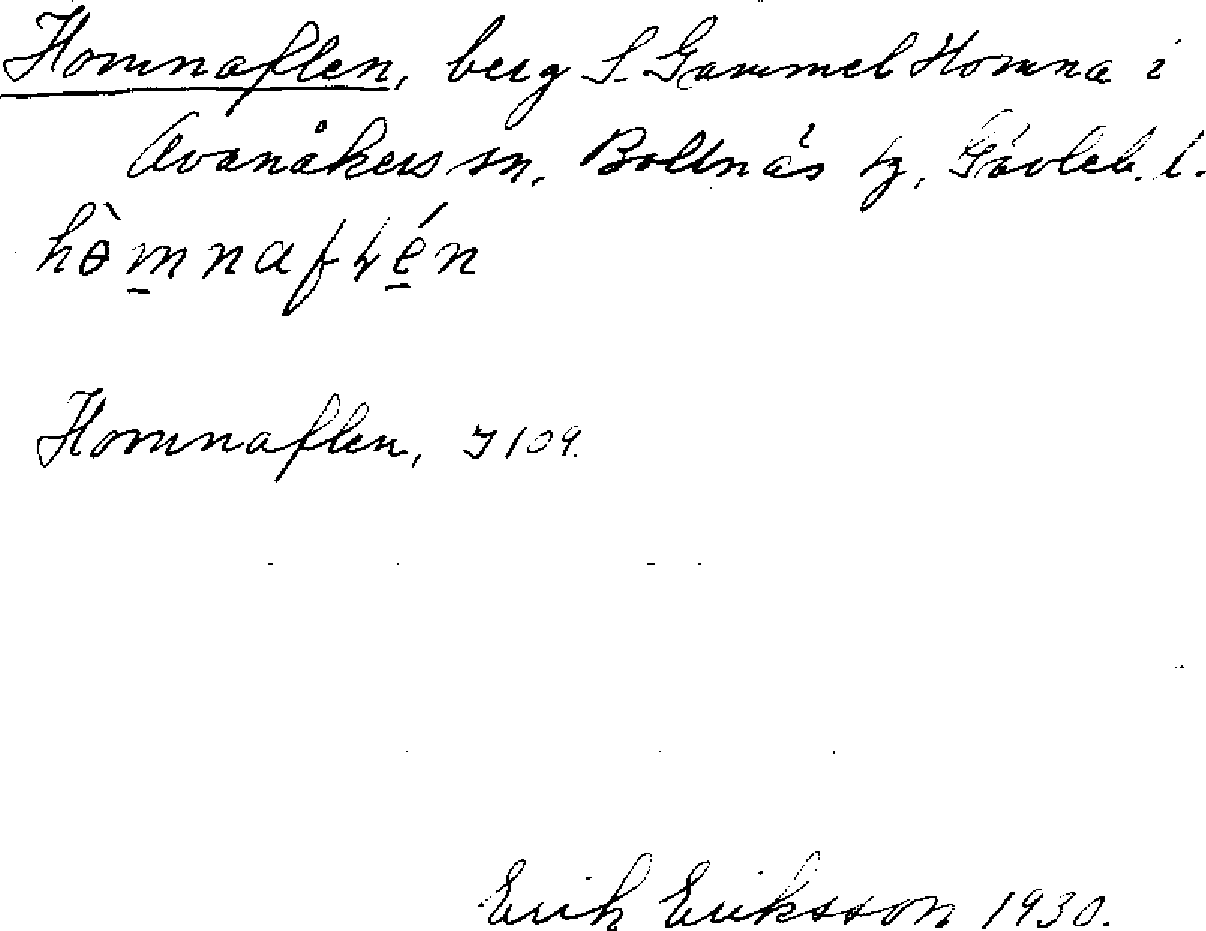 Homnaflen, berg S. Gammel Homna i
Svanåkers sn, Bollnäs tg, Gävleb. l.
hòmnaflén
Homnaflen, J109.
Erik Eriksson 1930.